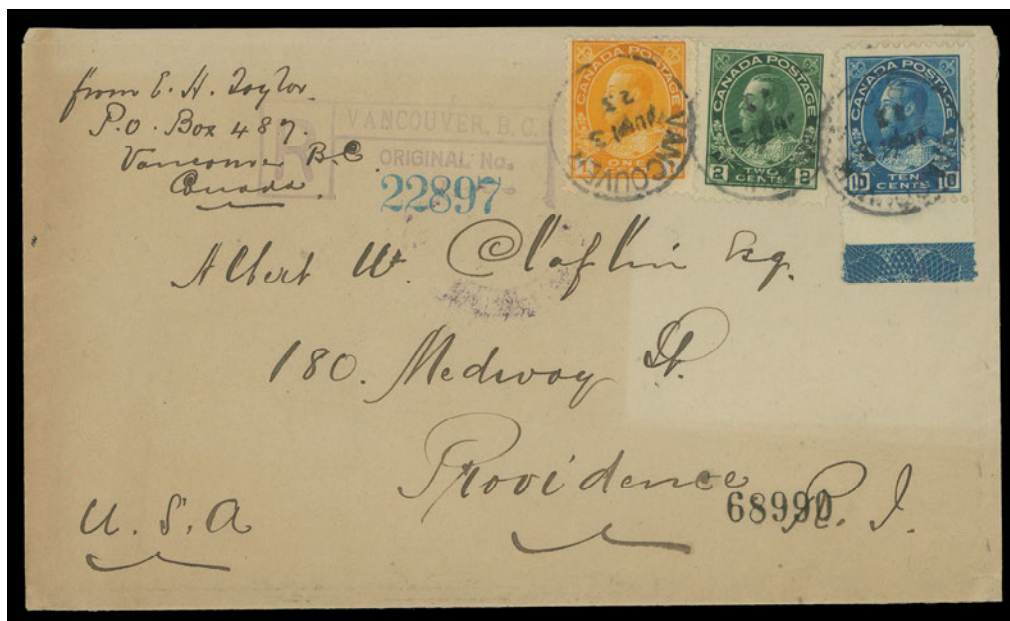 from E. H. Taylor.
P.O. Box 487.
Vancouver B.C
Canada
R
VANCOUVER, B.C.
ORIGINAL No.
22897
CANADA POSTAGE
ONE
CANADA POSTAGE
2 TWO CENTS 2
CANADA POSTAGE
10 TEN CENTS 10
VANCOUVER
23
Albert W. Claflin Esq.
180. Medway St.
Providence R. I.
68990
U. S. A